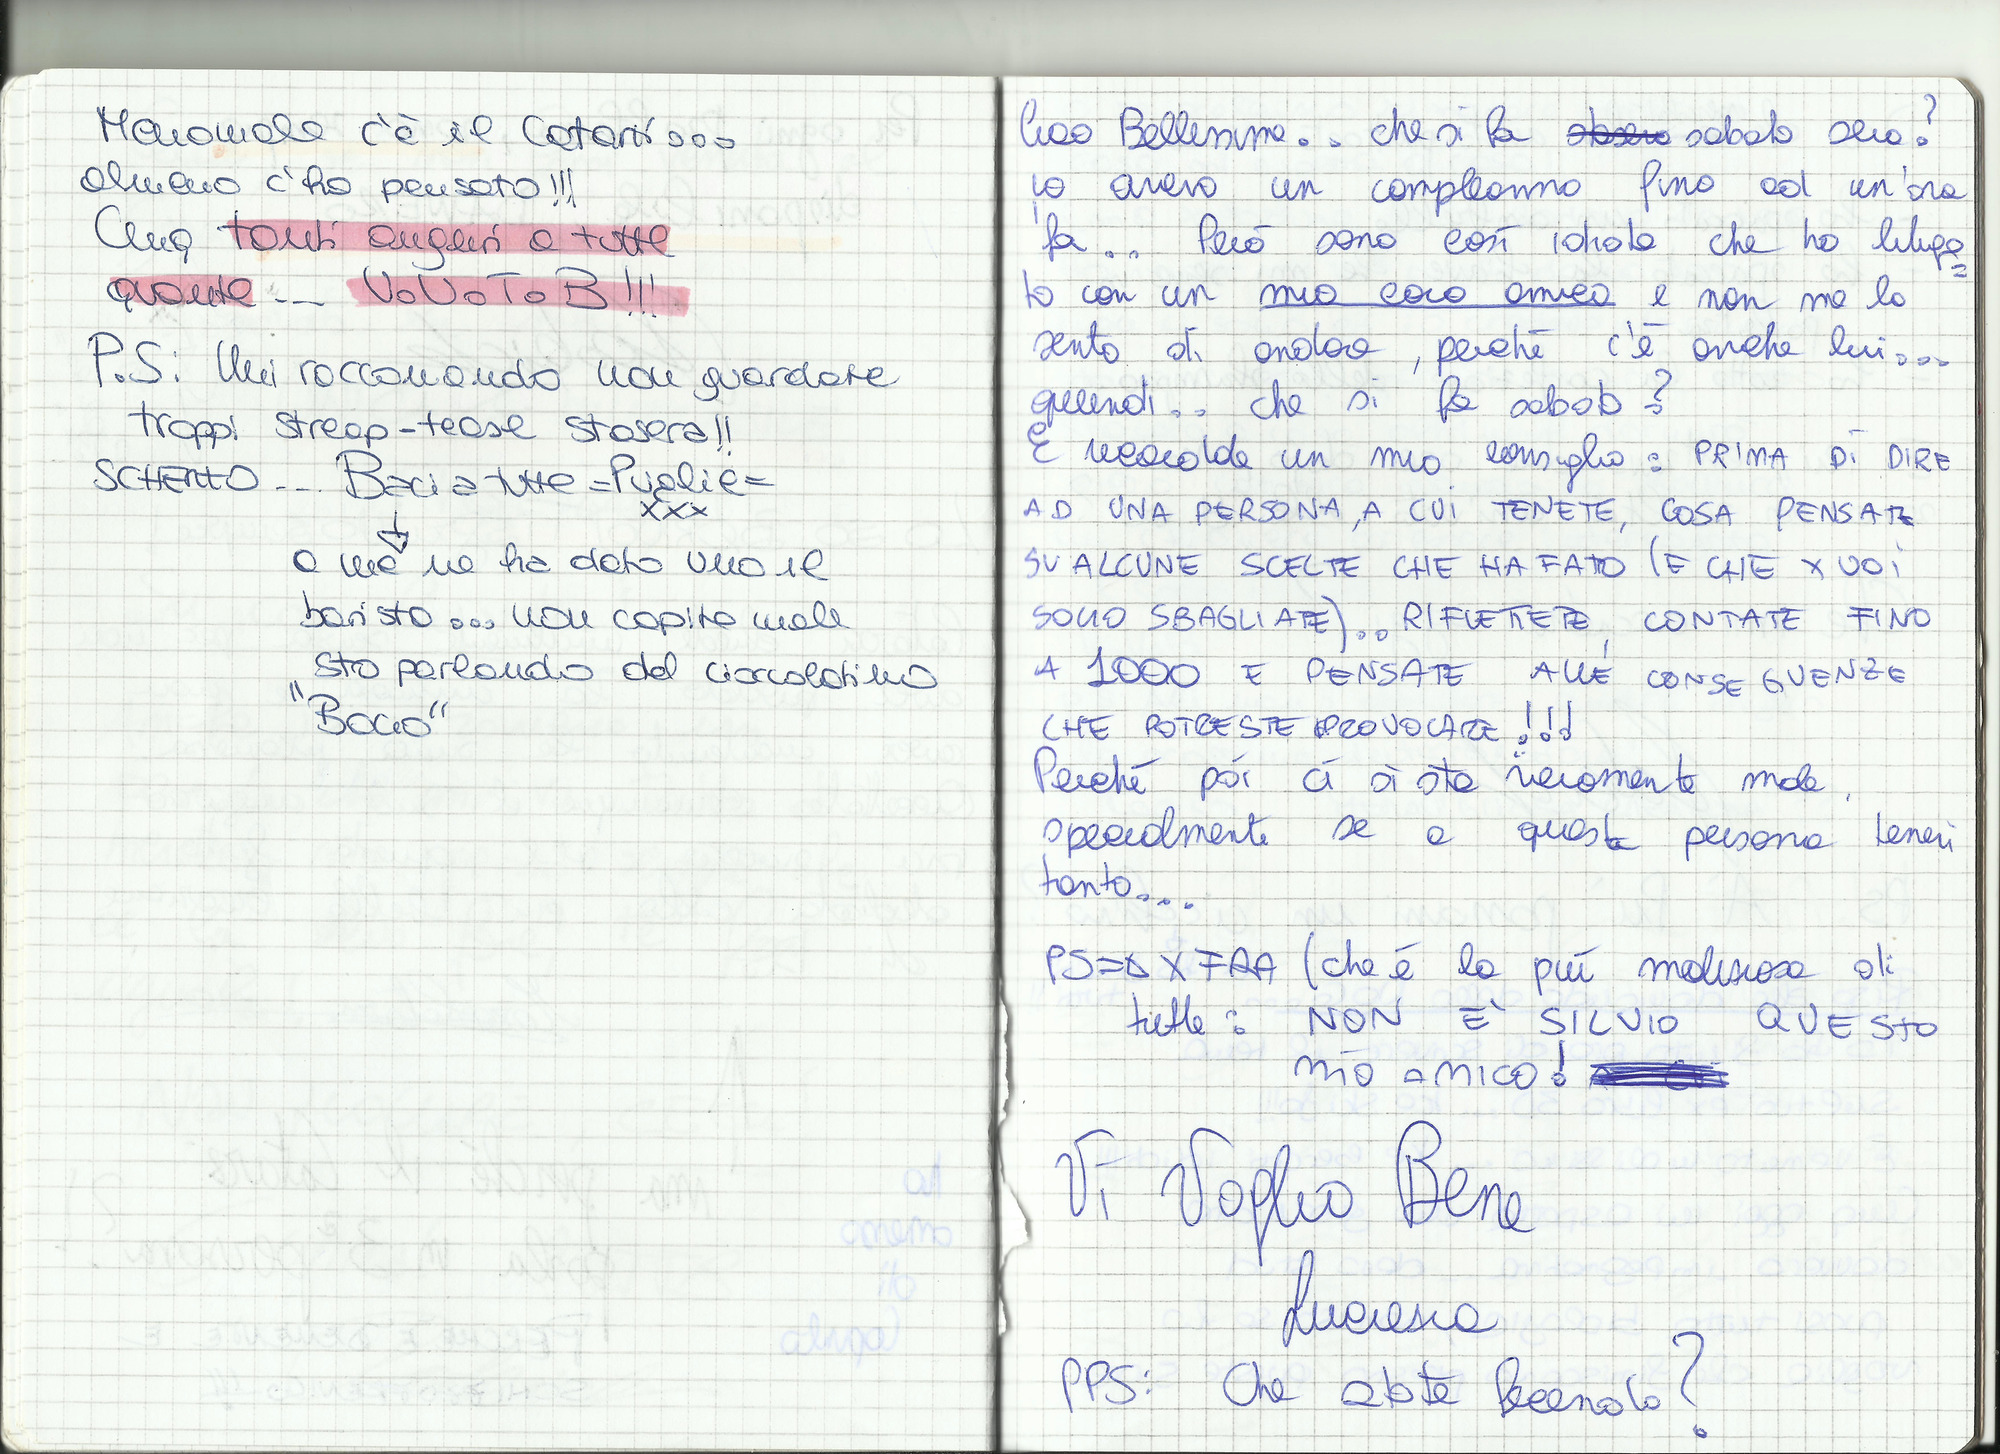 Menomale c'è il Cotoni...
almeno c'ho pensato!!!
Cmq tanti auguri a tutte
quante... V.V.T.B!!!
P.S: Mi raccomando non guardate
troppi streap-tease stasera!!
SCHERZO... Baci a tutte =Puglie=
xxx
a me ne ha dato uno il
barista... non capite male
sto parlando del cioccolatino
"Bacio"
Ciao Bellissime.. che si fa sabato sera?
io avevo un compleanno fino ad un'ora
fa... Però sono così idiota che ho litiga=
to con un mio caro amico e non me la
sento di andare, perché c'è anche lui...
quindi.. che si fa sabato?
E ricordate un mio consiglio: PRIMA DI DIRE
AD UNA PERSONA, A CUI TENETE, COSA PENSATE
SU ALCUNE SCELTE CHE HA FATTO (E CHE X VOI
SONO SBAGLIATE).. RIFLETTETE, CONTATE FINO
A 1000 E PENSATE ALLE CONSEGUENZE
CHE POTRESTE PROVOCARE!!!
Perché poi ci si sta veramente male,
specialmente se a questa persona tenevi
tanto...
PS= X FRA (che è la più maliziosa di
tutte: NON È SILVIO QUESTO
MIO AMICO!
Vi Voglio Bene
Lucrezia
PPS: Che state facendo?